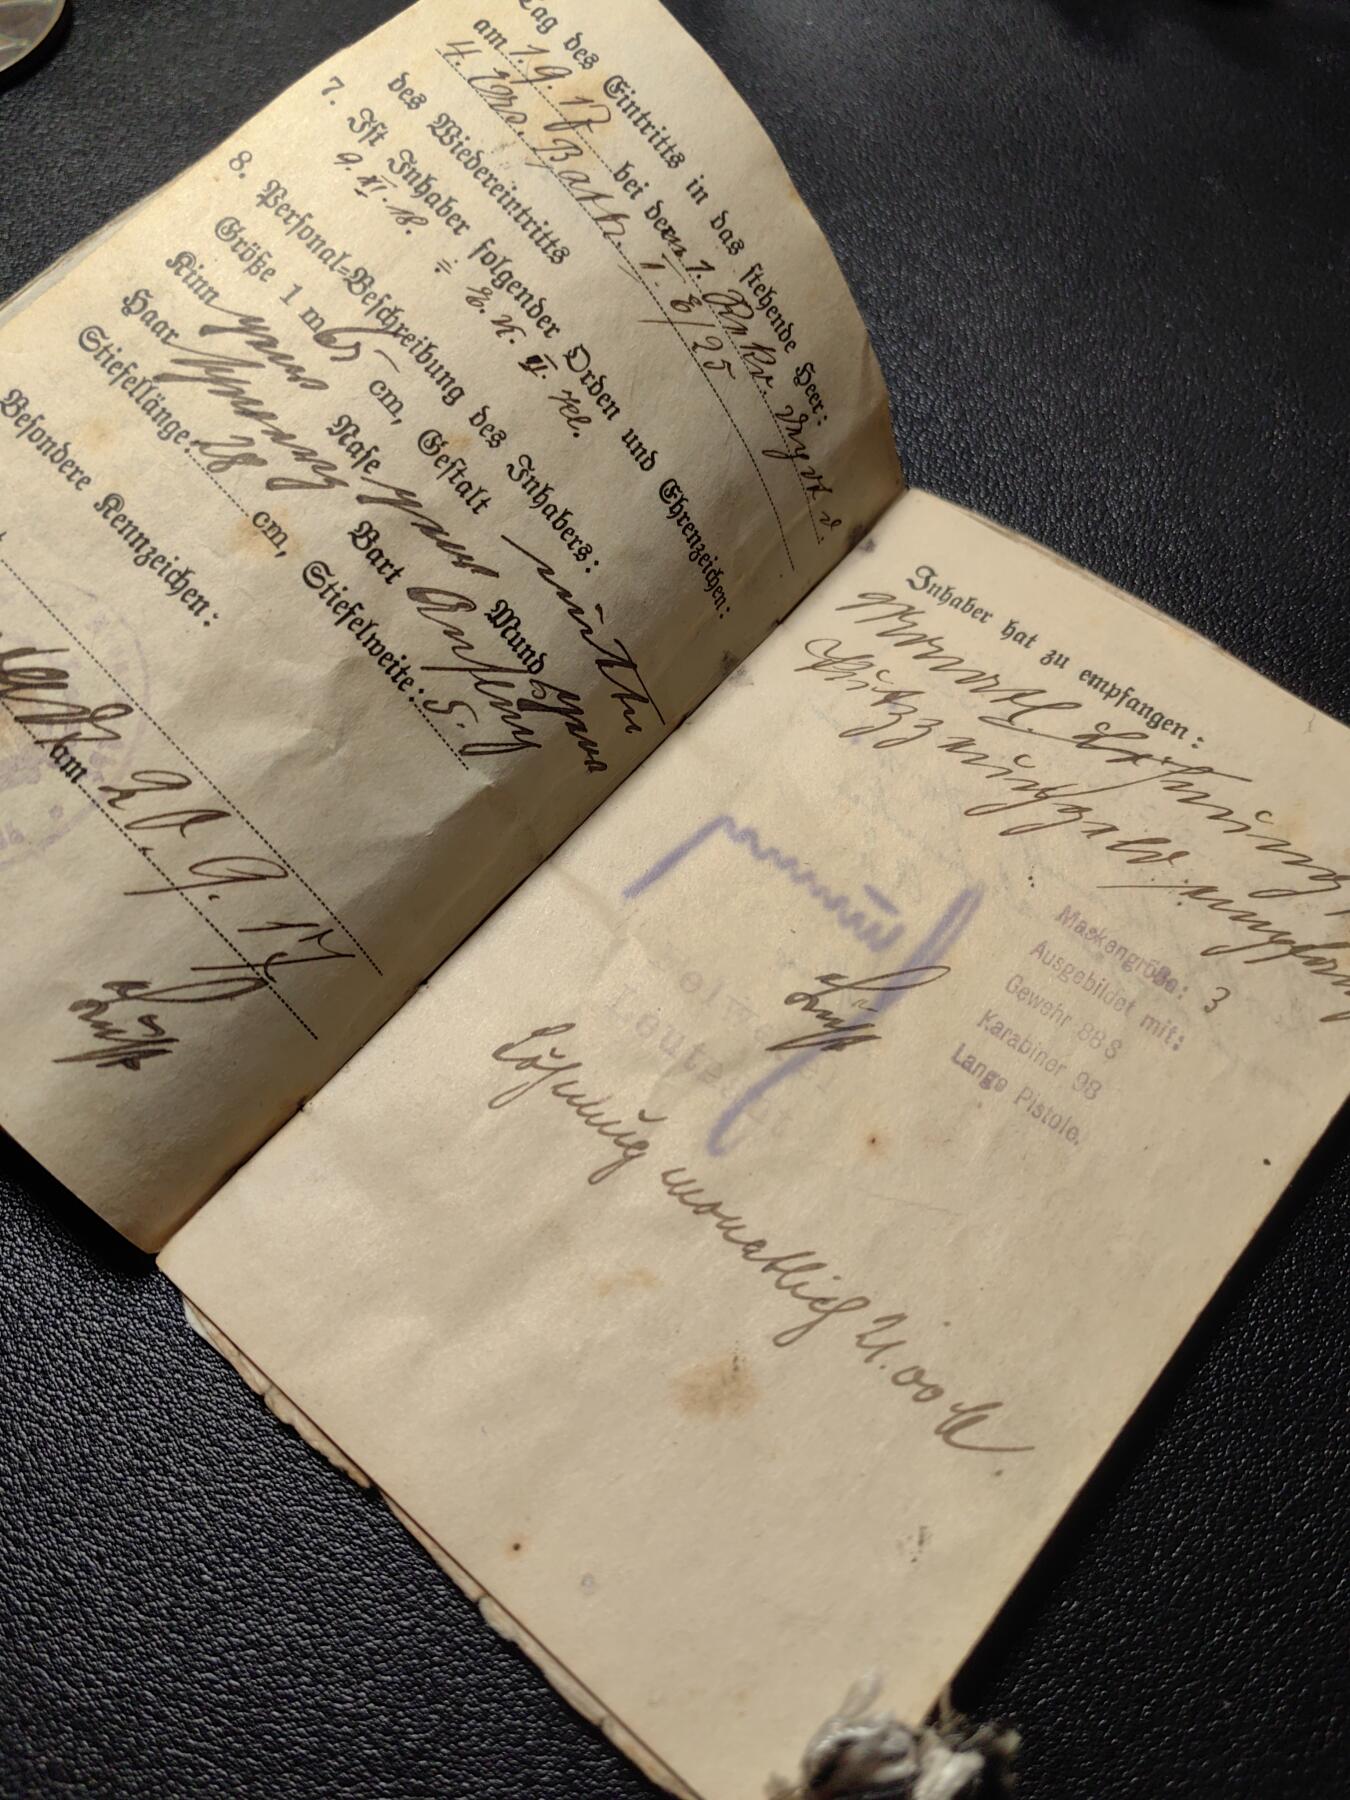 Tag des Eintritts in das stehende Heer:
am 1.9.17 bei dem 1. Rekr.
4. Ers. Batt. I. E/25
des Wiedereintritts
7. Ist Inhaber folgender Orden und Ehrenzeichen:
9. XI. 18. = E. K. II. Kl.
8. Personal-Beschreibung des Inhabers:
Größe 1 m 65 cm, Gestalt mittel
Kinn gew Nase gew Mund gew
Haar schwarz Bart Anflug
Stiefellänge 28 cm, Stiefelweite: 5.
Besondere Kennzeichen:
am 20. 9. 17
Inhaber hat zu empfangen:
Löhnung
Putzzeuggeld empfang
Maskengröße: 3
Ausgebildet mit:
Gewehr 88 S
Karabiner 98
Lange Pistole.
Leutnant
Löhnung monatlich 21.00 M